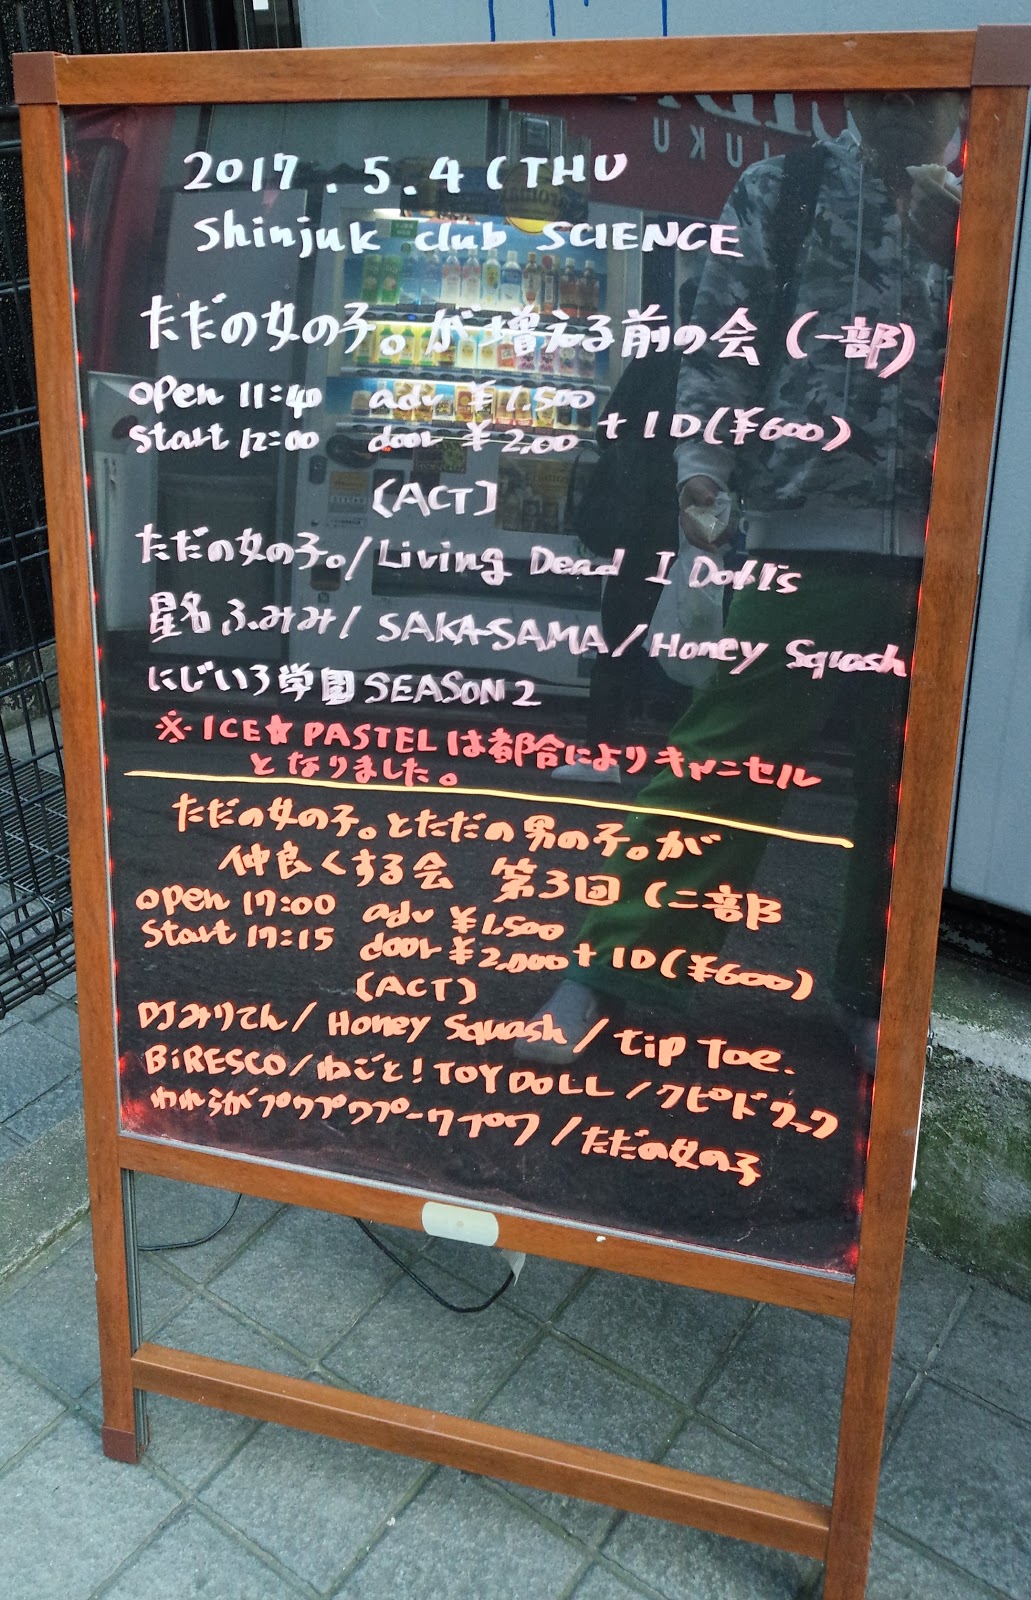 2017.5.4(THU
Shinjuk club SCIENCE
ただの女の子。が増える前の会(一部)
open 11:40 adv ¥1,500
start 12:00 door ¥2,00 +1D(¥600)
[ACT]
ただの女の子。/Living Dead I Dolls
星名ふみみ/SAKA-SAMA/Honey Squash
にじいろ学園SEASON2
※ICE★PASTELは都合によりキャンセル
となりました。
ただの女の子。とただの男の子。が
仲良くする会 第3回(二部
open 17:00 adv ¥1,500
start 17:15 door ¥2,000+1D(¥600)
[ACT]
DJみりてん/Honey Squash/tip Toe.
BiRESCO/ねごと!TOY DOLL/クピドゥック
われらがプワプワプーワプワ/ただの女の子
UKU